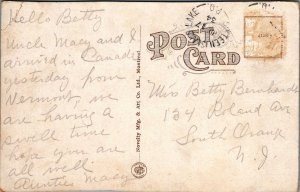 Hello Betty
Uncle Macy and I
arrived in Canada
yesterday from
Vermont, we
are having a
swell time
hope you are
all well
Auntie Macy
Novelty Mfg. & Art Co., Ltd., Montreal
POST
CARD
Miss Betty Bernhards
134 Roland Av
South Orange
N. J.